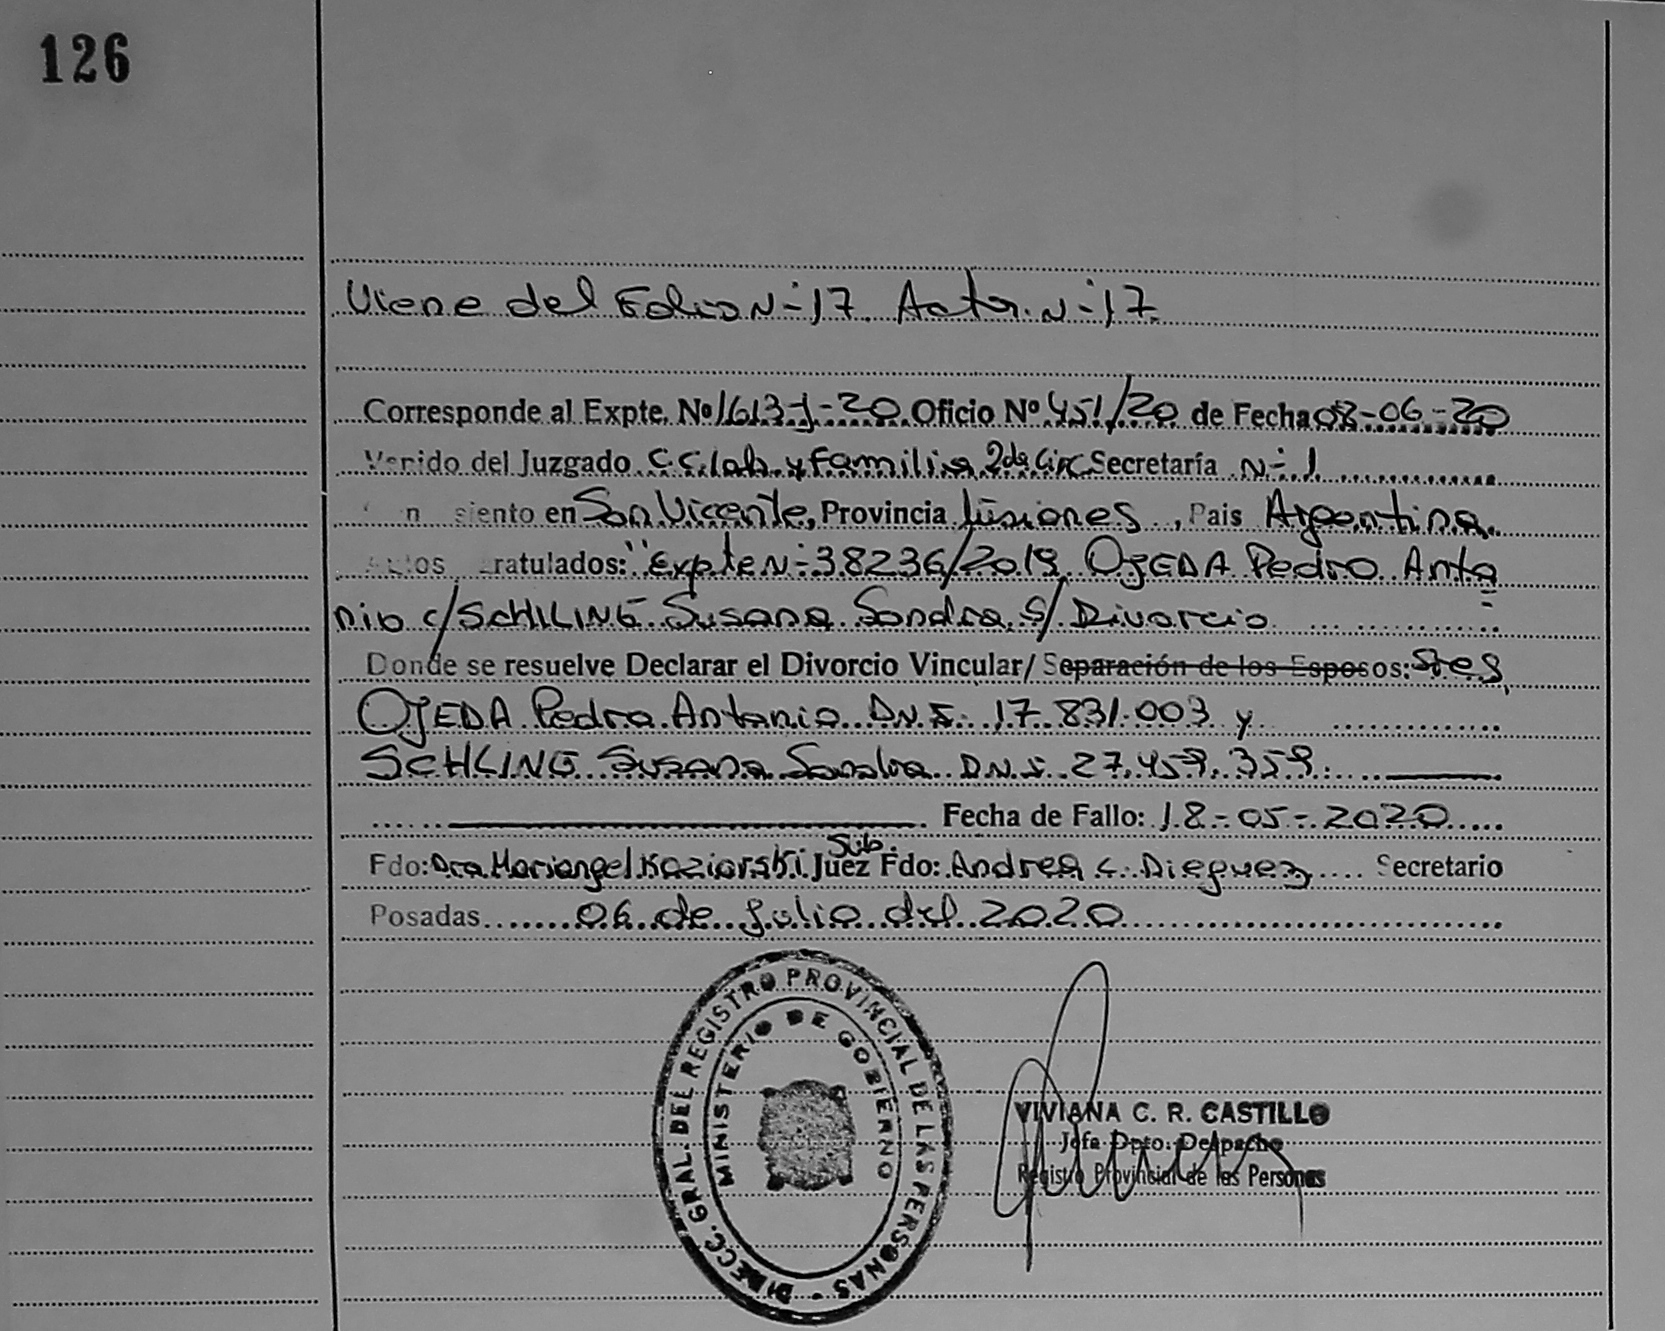 126
Viene del Folio N-17. Acta. N-17.
Corresponde al Expte. Nº 1613-J-20 Oficio Nº 451/20 de Fecha 08-06-20
Venido del Juzgado C.C. lab. y Familia 2da Circ Secretaría N-1
n siento en San Vicente, Provincia Misiones, Pais Argentina.
ratulados: "Expte N-38236/2019, OJEDA Pedro Anto
nio c/ SCHILING Susana Sandra. S/ Divorcio
Donde se resuelve Declarar el Divorcio Vincular/ Separación de los Esposos: Stes,
OJEDA Pedro Antonio D.N.I. 17.831.003 y
SCHLING Susana Sandra D.N.I. 27.459.359.
Fecha de Fallo: 18-05-2020
Sub.
Fdo: Dra Mariangel Koziarski Juez Fdo: Andrea C. Dieguez Secretario
Posadas 06 de Julio del 2020
DIRECC. GRAL. DEL REGISTRO PROVINCIAL DE LAS PERSONAS
MINISTERIO DE GOBIERNO
VIVIANA C. R. CASTILLO
Jefa Dpto. Despacho
Registro Provincial de las Personas